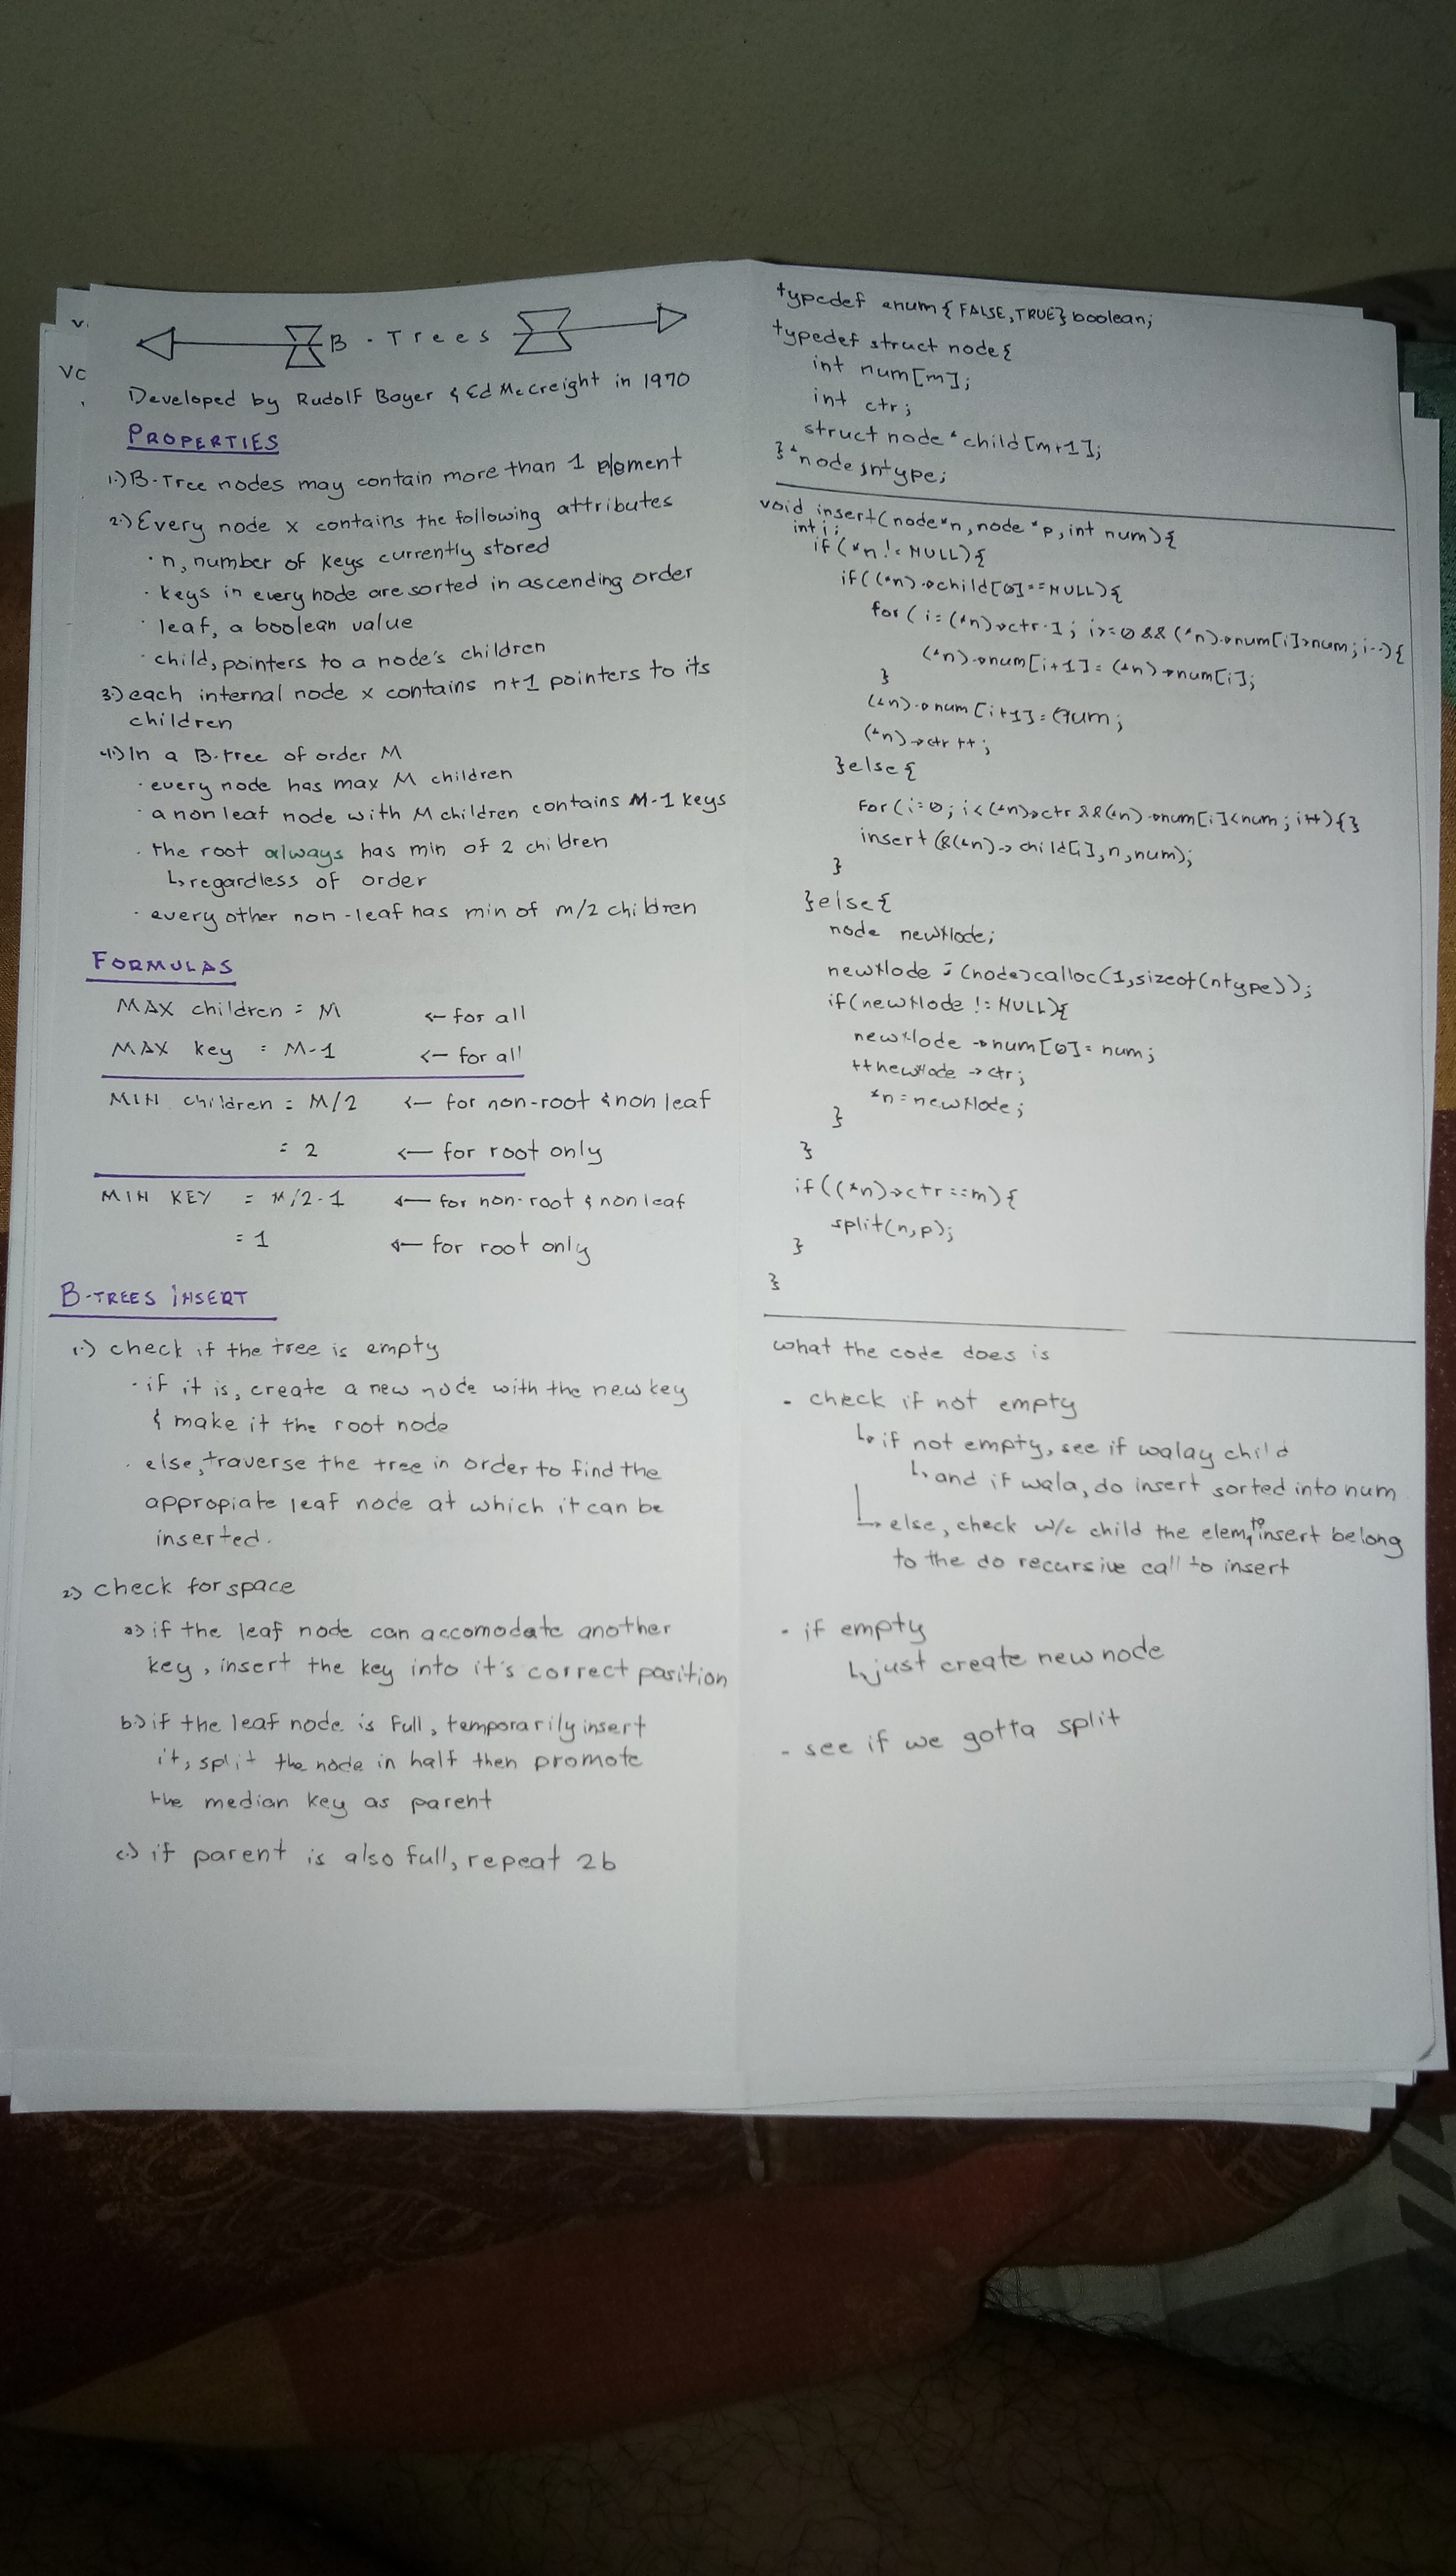 B-Trees
Developed by Rudolf Bayer & Ed McCreight in 1970
PROPERTIES
1.) B-Tree nodes may contain more than 1 element
2.) Every node x contains the following attributes
· n, number of keys currently stored
· keys in every node are sorted in ascending order
· leaf, a boolean value
· child, pointers to a node's children
3.) each internal node x contains n+1 pointers to its
children
4.) In a B-tree of order M
· every node has max M children
· a non leaf node with M children contains M-1 keys
· the root always has min of 2 children
↳ regardless of order
· every other non-leaf has min of m/2 children
FORMULAS
MAX children = M ← for all
MAX key = M-1 ← for all
MIN children = M/2 ← for non-root & non leaf
= 2 ← for root only
MIN KEY = M/2-1 ← for non-root & non leaf
= 1 ← for root only
B-TREES INSERT
1.) check if the tree is empty
· if it is, create a new node with the new key
& make it the root node
· else, traverse the tree in order to find the
appropiate leaf node at which it can be
inserted.
2.) check for space
a.) if the leaf node can accomodate another
key, insert the key into it's correct position
b.) if the leaf node is Full, temporarily insert
it, split the node in half then promote
the median key as parent
c.) if parent is also full, repeat 2b
typedef enum{FALSE,TRUE}boolean;
typedef struct node{
int num[m];
int ctr;
struct node *child[m+1];
}*node,ntype;
void insert(node*n,node *p,int num){
int i;
if(*n != NULL){
if((*n)->child[0]==NULL){
for(i=(*n)->ctr-1; i>=0 && (*n)->num[i]>num; i--){
(*n)->num[i+1] = (*n)->num[i];
}
(*n)->num[i+1] = num;
(*n)->ctr++;
}else{
for(i=0; i<(*n)->ctr &&(*n)->num[i]<num; i++){}
insert(&(*n)->child[i],n,num);
}
}else{
node newNode;
newNode = (node)calloc(1,sizeof(ntype));
if(newNode != NULL){
newNode->num[0] = num;
++newNode->ctr;
*n = newNode;
}
}
if((*n)->ctr==m){
split(n,p);
}
}
what the code does is
- check if not empty
↳ if not empty, see if walay child
↳ and if wala, do insert sorted into num
↳ else, check w/c child the elem, to insert belong
to the do recursive call to insert
- if empty
↳ just create new node
- see if we gotta split